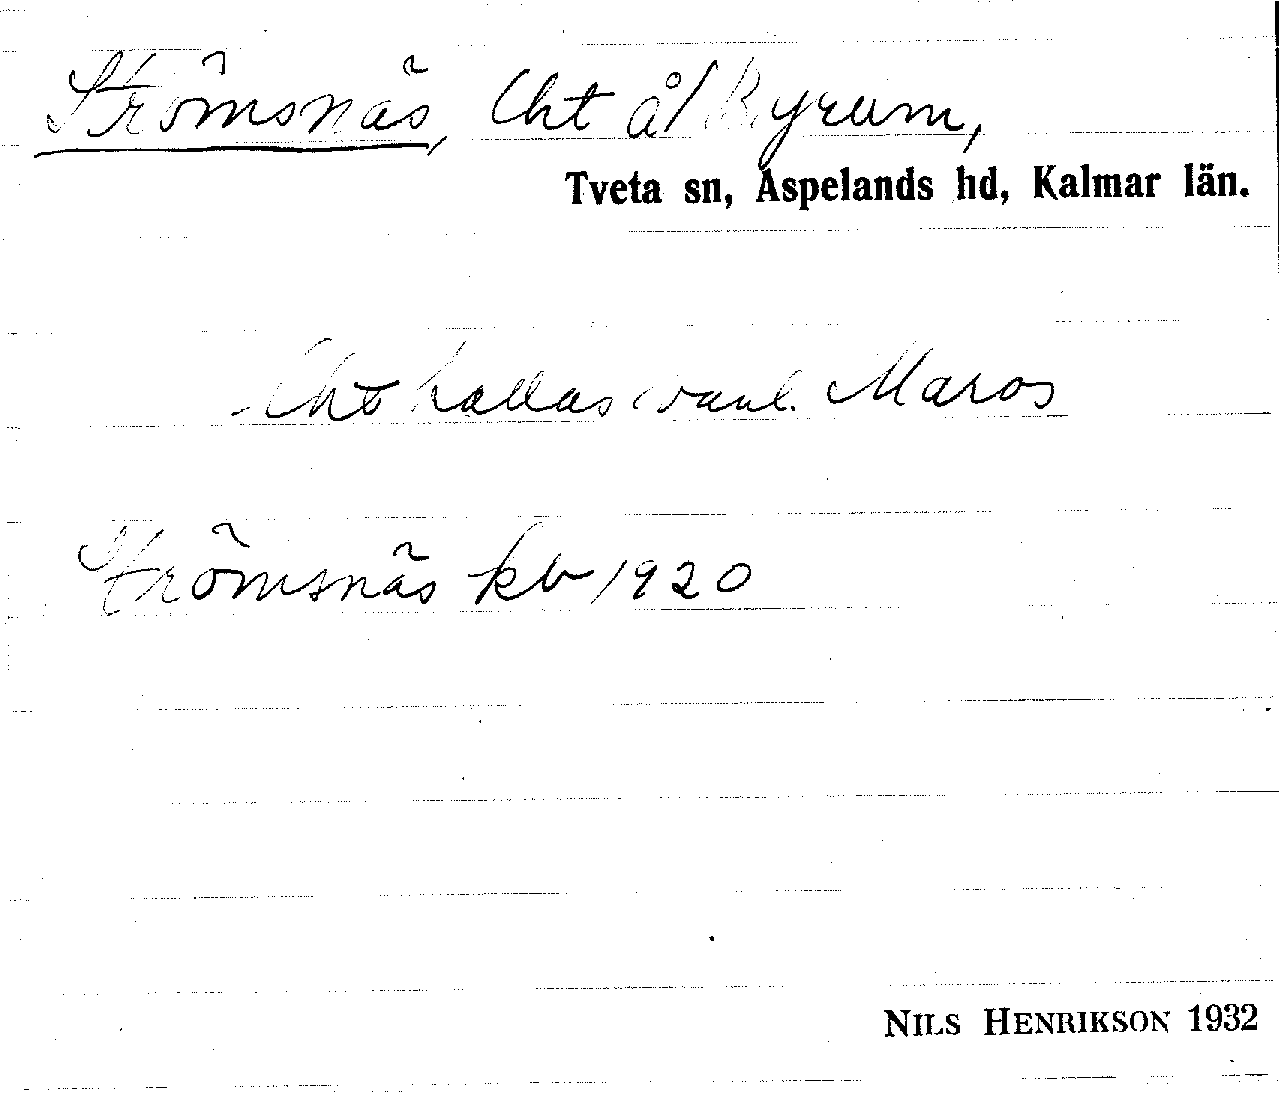 Strömsnäs, lht å/ Ryrum,
Tveta sn, Aspelands hd, Kalmar län.
Lht kallas vanl. Maros
Strömsnäs kb 1920
NILS HENRIKSON 1932